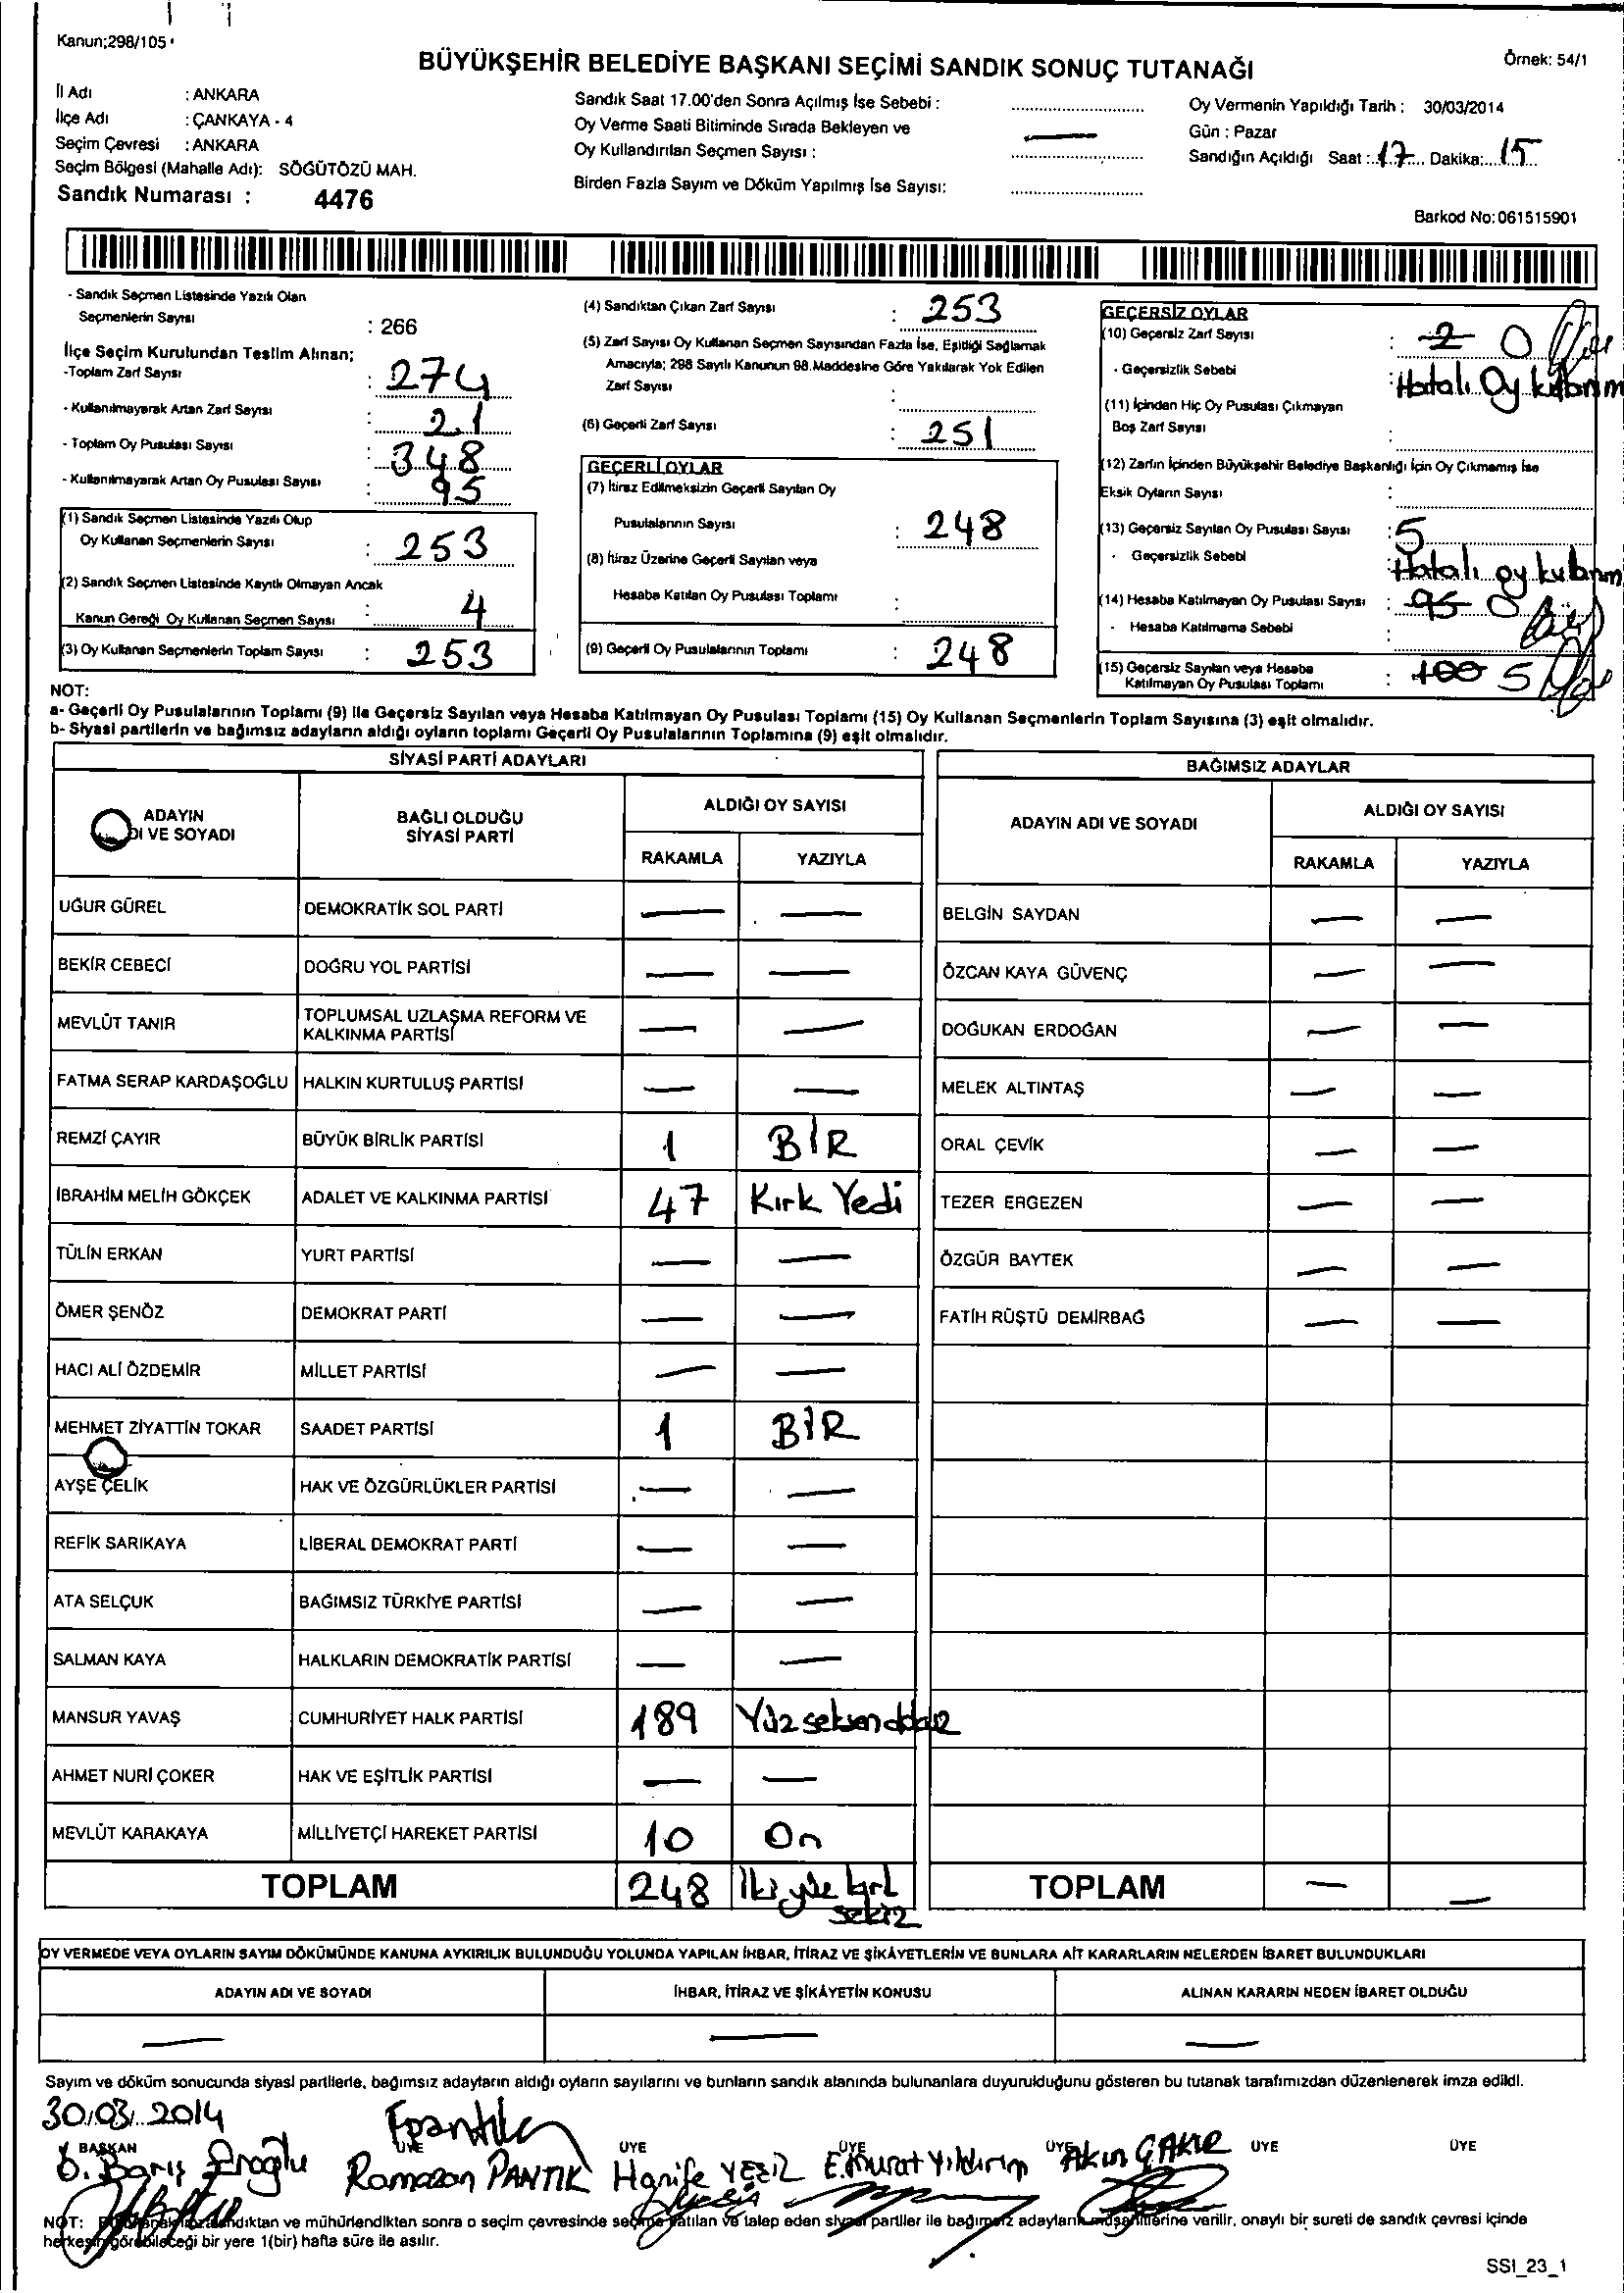 Kanun;298/105
BÜYÜKŞEHİR BELEDİYE BAŞKANI SEÇİMİ SANDIK SONUÇ TUTANAĞI
Örnek: 54/1
İl Adı : ANKARA
İlçe Adı : ÇANKAYA - 4
Seçim Çevresi : ANKARA
Seçim Bölgesi (Mahalle Adı): SÖĞÜTÖZÜ MAH.
Sandık Numarası : 4476
Sandık Saat 17.00'den Sonra Açılmış İse Sebebi :
Oy Verme Saati Bitiminde Sırada Bekleyen ve
Oy Kullandırılan Seçmen Sayısı :
Birden Fazla Sayım ve Döküm Yapılmış İse Sayısı:
Oy Vermenin Yapıldığı Tarih : 30/03/2014
Gün : Pazar
Sandığın Açıldığı Saat : 17 Dakika: 15
Barkod No: 061515901
- Sandık Seçmen Listesinde Yazılı Olan
Seçmenlerin Sayısı : 266
İlçe Seçim Kurulundan Teslim Alınan;
-Toplam Zarf Sayısı : 274
- Kullanılmayarak Artan Zarf Sayısı : 21
- Toplam Oy Pusulası Sayısı : 348
- Kullanılmayarak Artan Oy Pusulası Sayısı : 95
(1) Sandık Seçmen Listesinde Yazılı Olup
Oy Kullanan Seçmenlerin Sayısı : 253
(2) Sandık Seçmen Listesinde Kayıtlı Olmayan Ancak
Kanun Gereği Oy Kullanan Seçmen Sayısı : 4
(3) Oy Kullanan Seçmenlerin Toplam Sayısı : 253
(4) Sandıktan Çıkan Zarf Sayısı : 253
(5) Zarf Sayısı Oy Kullanan Seçmen Sayısından Fazla İse, Eşitliği Sağlamak
Amacıyla; 298 Sayılı Kanunun 98.Maddesine Göre Yakılarak Yok Edilen
Zarf Sayısı :
(6) Geçerli Zarf Sayısı : 251
GEÇERLİ OYLAR
(7) İtiraz Edilmeksizin Geçerli Sayılan Oy
Pusulalarının Sayısı : 248
(8) İtiraz Üzerine Geçerli Sayılan veya
Hesaba Katılan Oy Pusulası Toplamı :
(9) Geçerli Oy Pusulalarının Toplamı : 248
GEÇERSİZ OYLAR
(10) Geçersiz Zarf Sayısı : 2 0
- Geçersizlik Sebebi : Hatalı Oy kullanım
(11) İçinden Hiç Oy Pusulası Çıkmayan
Boş Zarf Sayısı :
(12) Zarfın İçinden Büyükşehir Belediye Başkanlığı İçin Oy Çıkmamış İse
Eksik Oyların Sayısı :
(13) Geçersiz Sayılan Oy Pusulası Sayısı : 5
- Geçersizlik Sebebi : Hatalı oy kullanım
(14) Hesaba Katılmayan Oy Pusulası Sayısı : 95 0
- Hesaba Katılmama Sebebi :
(15) Geçersiz Sayılan veya Hesaba
Katılmayan Oy Pusulası Toplamı : 100 5
NOT:
a- Geçerli Oy Pusulalarının Toplamı (9) ile Geçersiz Sayılan veya Hesaba Katılmayan Oy Pusulası Toplamı (15) Oy Kullanan Seçmenlerin Toplam Sayısına (3) eşit olmalıdır.
b- Siyasi partilerin ve bağımsız adayların aldığı oyların toplamı Geçerli Oy Pusulalarının Toplamına (9) eşit olmalıdır.
SİYASİ PARTİ ADAYLARI
ADAYIN
DI VE SOYADI
BAĞLI OLDUĞU
SİYASİ PARTİ
ALDIĞI OY SAYISI
RAKAMLA YAZIYLA
UĞUR GÜREL DEMOKRATİK SOL PARTİ — —
BEKİR CEBECİ DOĞRU YOL PARTİSİ — —
MEVLÜT TANIR TOPLUMSAL UZLAŞMA REFORM VE
KALKINMA PARTİSİ — —
FATMA SERAP KARDAŞOĞLU HALKIN KURTULUŞ PARTİSİ — —
REMZİ ÇAYIR BÜYÜK BİRLİK PARTİSİ 1 BİR
İBRAHİM MELİH GÖKÇEK ADALET VE KALKINMA PARTİSİ 47 Kırk Yedi
TÜLİN ERKAN YURT PARTİSİ — —
ÖMER ŞENÖZ DEMOKRAT PARTİ — —
HACI ALİ ÖZDEMİR MİLLET PARTİSİ — —
MEHMET ZİYATTİN TOKAR SAADET PARTİSİ 1 BİR
AYŞE ÇELİK HAK VE ÖZGÜRLÜKLER PARTİSİ — —
REFİK SARIKAYA LİBERAL DEMOKRAT PARTİ — —
ATA SELÇUK BAĞIMSIZ TÜRKİYE PARTİSİ — —
SALMAN KAYA HALKLARIN DEMOKRATİK PARTİSİ — —
MANSUR YAVAŞ CUMHURİYET HALK PARTİSİ 189 Yüz seksen dokuz
AHMET NURİ ÇOKER HAK VE EŞİTLİK PARTİSİ — —
MEVLÜT KARAKAYA MİLLİYETÇİ HAREKET PARTİSİ 10 On
TOPLAM 248 İki yüz kırk
sekiz
BAĞIMSIZ ADAYLAR
ADAYIN ADI VE SOYADI
ALDIĞI OY SAYISI
RAKAMLA YAZIYLA
BELGİN SAYDAN — —
ÖZCAN KAYA GÜVENÇ — —
DOĞUKAN ERDOĞAN — —
MELEK ALTINTAŞ — —
ORAL ÇEVİK — —
TEZER ERGEZEN — —
ÖZGÜR BAYTEK — —
FATİH RÜŞTÜ DEMİRBAĞ — —
TOPLAM — —
OY VERMEDE VEYA OYLARIN SAYIM DÖKÜMÜNDE KANUNA AYKIRILIK BULUNDUĞU YOLUNDA YAPILAN İHBAR, İTİRAZ VE ŞİKÂYETLERİN VE BUNLARA AİT KARARLARIN NELERDEN İBARET BULUNDUKLARI
ADAYIN ADI VE SOYADI İHBAR, İTİRAZ VE ŞİKÂYETİN KONUSU ALINAN KARARIN NEDEN İBARET OLDUĞU
— — —
Sayım ve döküm sonucunda siyasi partilerle, bağımsız adayların aldığı oyların sayılarını ve bunların sandık alanında bulunanlara duyurulduğunu gösteren bu tutanak tarafımızdan düzenlenerek imza edildi.
30.03.2014
BAŞKAN ÜYE ÜYE ÜYE ÜYE ÜYE ÜYE
Barış Eroğlu Ramazan PANTIK Hanife YEŞİL E.Murat Yıldırım Akın ÇAKIR
NOT: ve mühürlendikten sonra o seçim çevresinde seçime katılan ve talep eden siyasi partiler ile bağımsız adayların müşahitlerine verilir, onaylı bir sureti de sandık çevresi içinde
herkesin görebileceği bir yere 1(bir) hafta süre ile asılır.
SSI_23_1